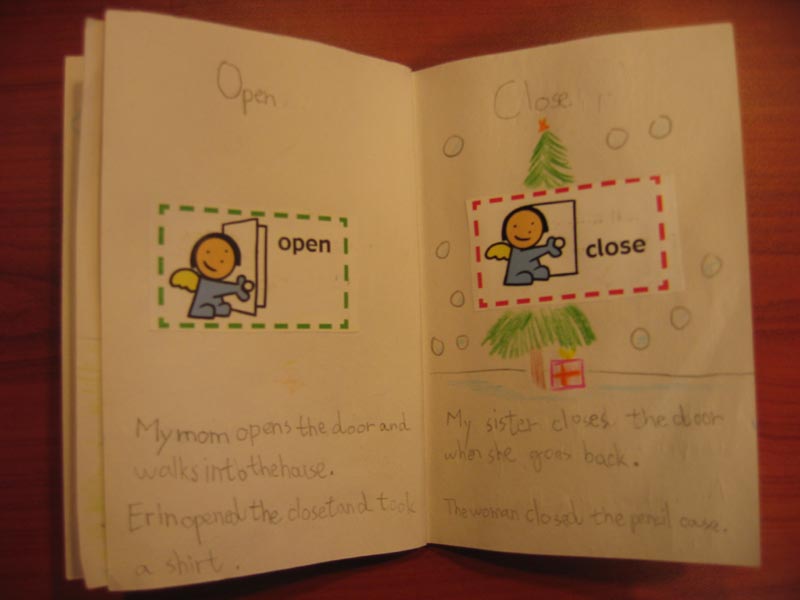 Open
open
My mom opens the door and
walks into the house.
Erin opened the closet and took
a shirt.
Close
close
My sister closes the door
when she goes back.
The woman closed the pencil case.